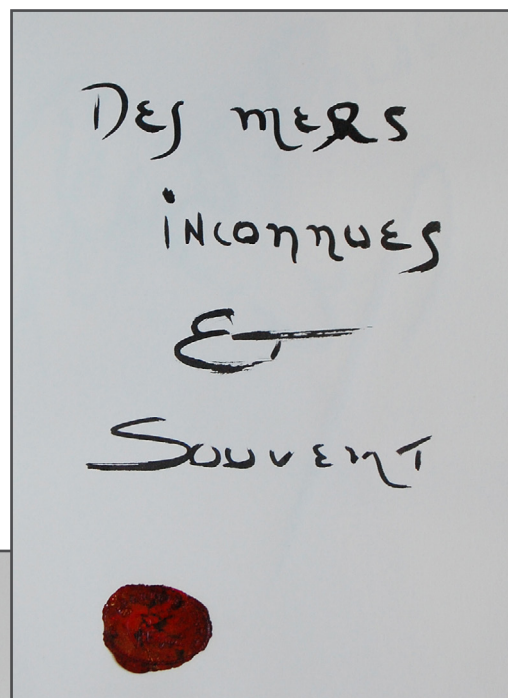 Des mers
inconnues
&
Souvent